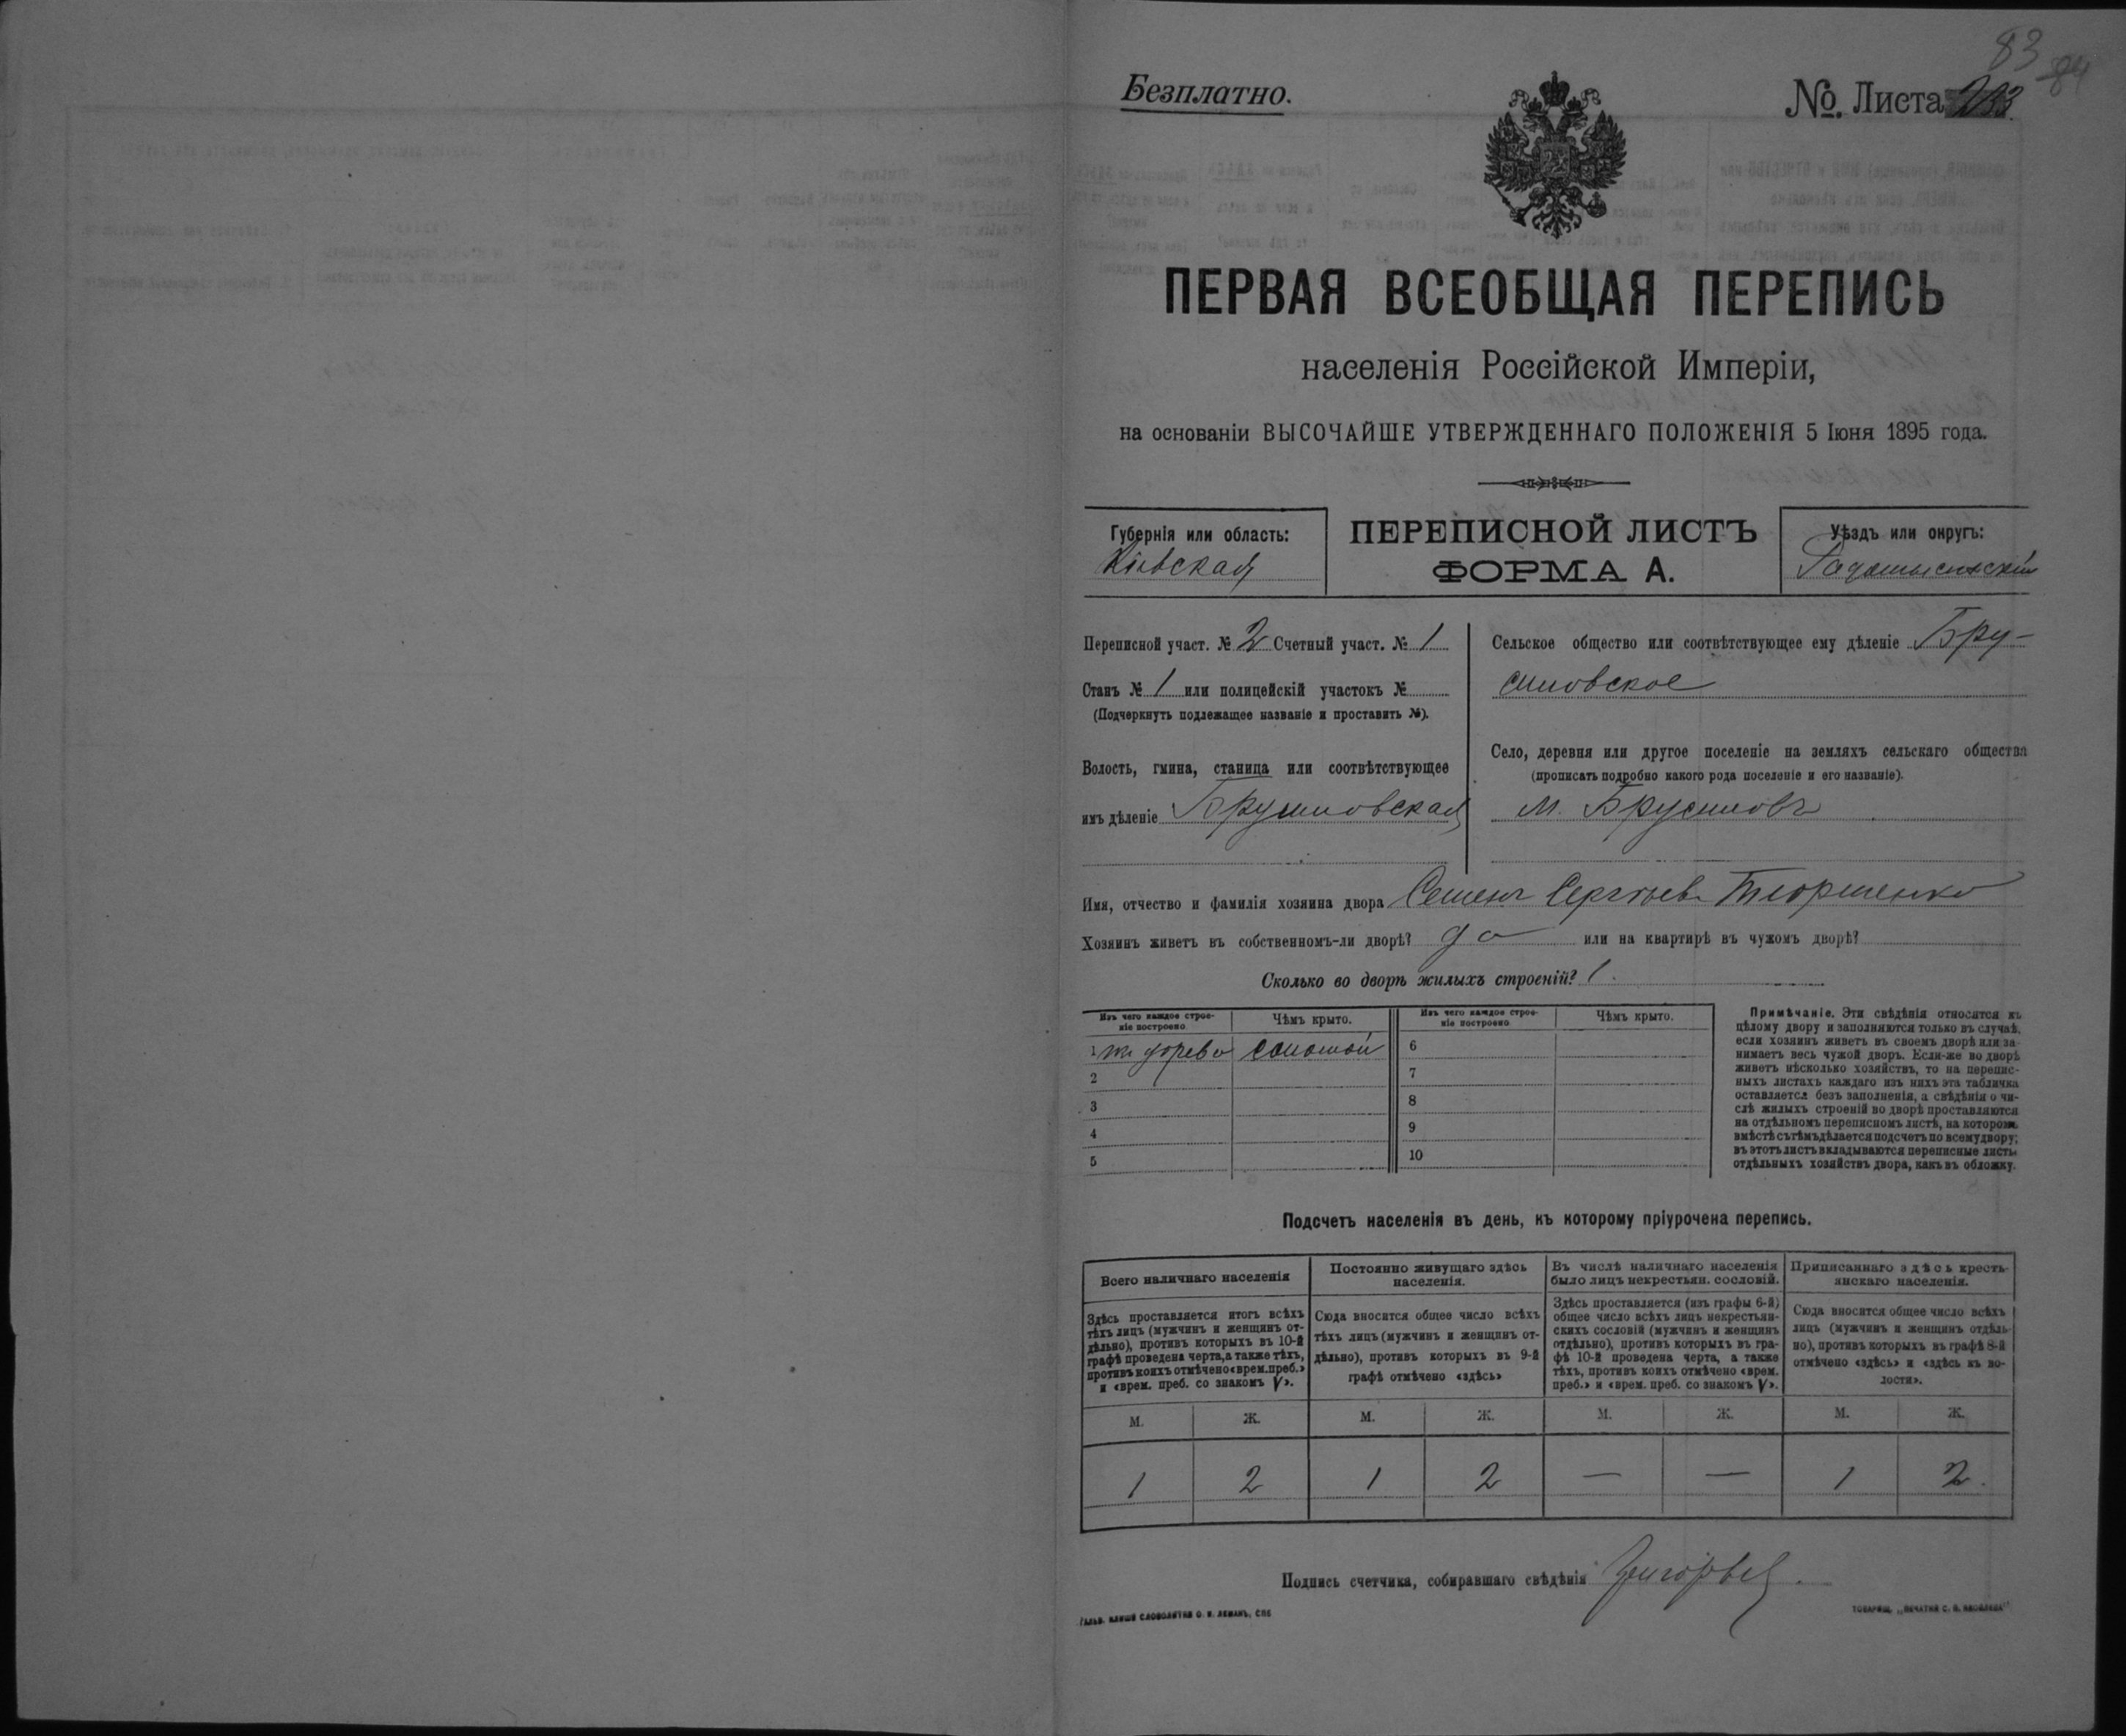 83
84
Безплатно.
№ Листа
ПЕРВАЯ ВСЕОБЩАЯ ПЕРЕПИСЬ
населенія Россійской Имперіи,
на основаніи ВЫСОЧАЙШЕ УТВЕРЖДЕННАГО ПОЛОЖЕНІЯ 5 Іюня 1895 года.
Губернія или область:
Кіевская
ПЕРЕПИСНОЙ ЛИСТЪ
ФОРМА А.
Уѣздъ или округъ:
Радомысльскій
Переписной участ. № 2 Счетный участ. № 1
Станъ № 1 или полицейскій участокъ №
(Подчеркнуть подлежащее названіе и проставить №).
Волость, гмина, станица или соотвѣтствующее
имъ дѣленіе Брусиловская
Сельское общество или соотвѣтствующее ему дѣленіе Бру-
силовское
Село, деревня или другое поселеніе на земляхъ сельскаго общества
(прописать подробно какого рода поселеніе и его названіе).
м. Брусиловъ
Имя, отчество и фамилія хозяина двора Семенъ Сергѣевъ
Хозяинъ живетъ въ собственномъ-ли дворѣ? да или на квартирѣ въ чужомъ дворѣ?
Сколько во дворѣ жилыхъ строеній? 1.
Изъ чего каждое строе-
ніе построено
Чѣмъ крыто.
Изъ чего каждое строе-
ніе построено
Чѣмъ крыто.
1 дерева соломой
2
3
4
5
6
7
8
9
10
Примѣчаніе. Эти свѣдѣнія относятся къ
цѣлому двору и заполняются только въ случаѣ,
если хозяинъ живетъ въ своемъ дворѣ или за-
нимаетъ весь чужой дворъ. Если-же во дворѣ
живетъ нѣсколько хозяйствъ, то на перепис-
ныхъ листахъ каждаго изъ нихъ эта табличка
оставляется безъ заполненія, а свѣдѣнія о чи-
слѣ жилыхъ строеній во дворѣ проставляются
на отдѣльномъ переписномъ листѣ, на которомъ
вмѣстѣ съ тѣмъ дѣлается подсчетъ по всему двору;
въ этотъ листъ вкладываются переписные листы
отдѣльныхъ хозяйствъ двора, какъ въ обложку.
Подсчетъ населенія въ день, къ которому пріурочена перепись.
Всего наличнаго населенія
Здѣсь проставляется итогъ всѣхъ
тѣхъ лицъ (мужчинъ и женщинъ от-
дѣльно), противъ которыхъ въ 10-й
графѣ проведена черта, а также тѣхъ,
противъ коихъ отмѣчено «врем. преб.»
и «врем. преб. со знакомъ V».
Постоянно живущаго здѣсь
населенія.
Сюда вносится общее число всѣхъ
тѣхъ лицъ (мужчинъ и женщинъ от-
дѣльно), противъ которыхъ въ 9-й
графѣ отмѣчено «здѣсь»
Въ числѣ наличнаго населенія
было лицъ некрестьян. сословій.
Здѣсь проставляется (изъ графы 6-й)
общее число всѣхъ лицъ некрестьян-
скихъ сословій (мужчинъ и женщинъ
отдѣльно), противъ которыхъ въ гра-
фѣ 10-й проведена черта, а также
тѣхъ, противъ коихъ отмѣчено «врем.
преб.» и «врем. преб. со знакомъ V».
Приписаннаго здѣсь кресть-
янскаго населенія.
Сюда вносится общее число всѣхъ
лицъ (мужчинъ и женщинъ отдѣль-
но), противъ которыхъ въ графѣ 8-й
отмѣчено «здѣсь» и «здѣсь къ во-
лости».
М. Ж. М. Ж. М. Ж. М. Ж.
1 2 1 2 — — 1 2.
Подпись счетчика, собиравшаго свѣдѣнія
ГАЛЬВ. КЛИШЕ СЛОВОЛИТНИ О. И. ЛЕМАНЪ, СПБ
ТОВАРИЩ. „ПЕЧАТНЯ С. П. ЯКОВЛЕВА"